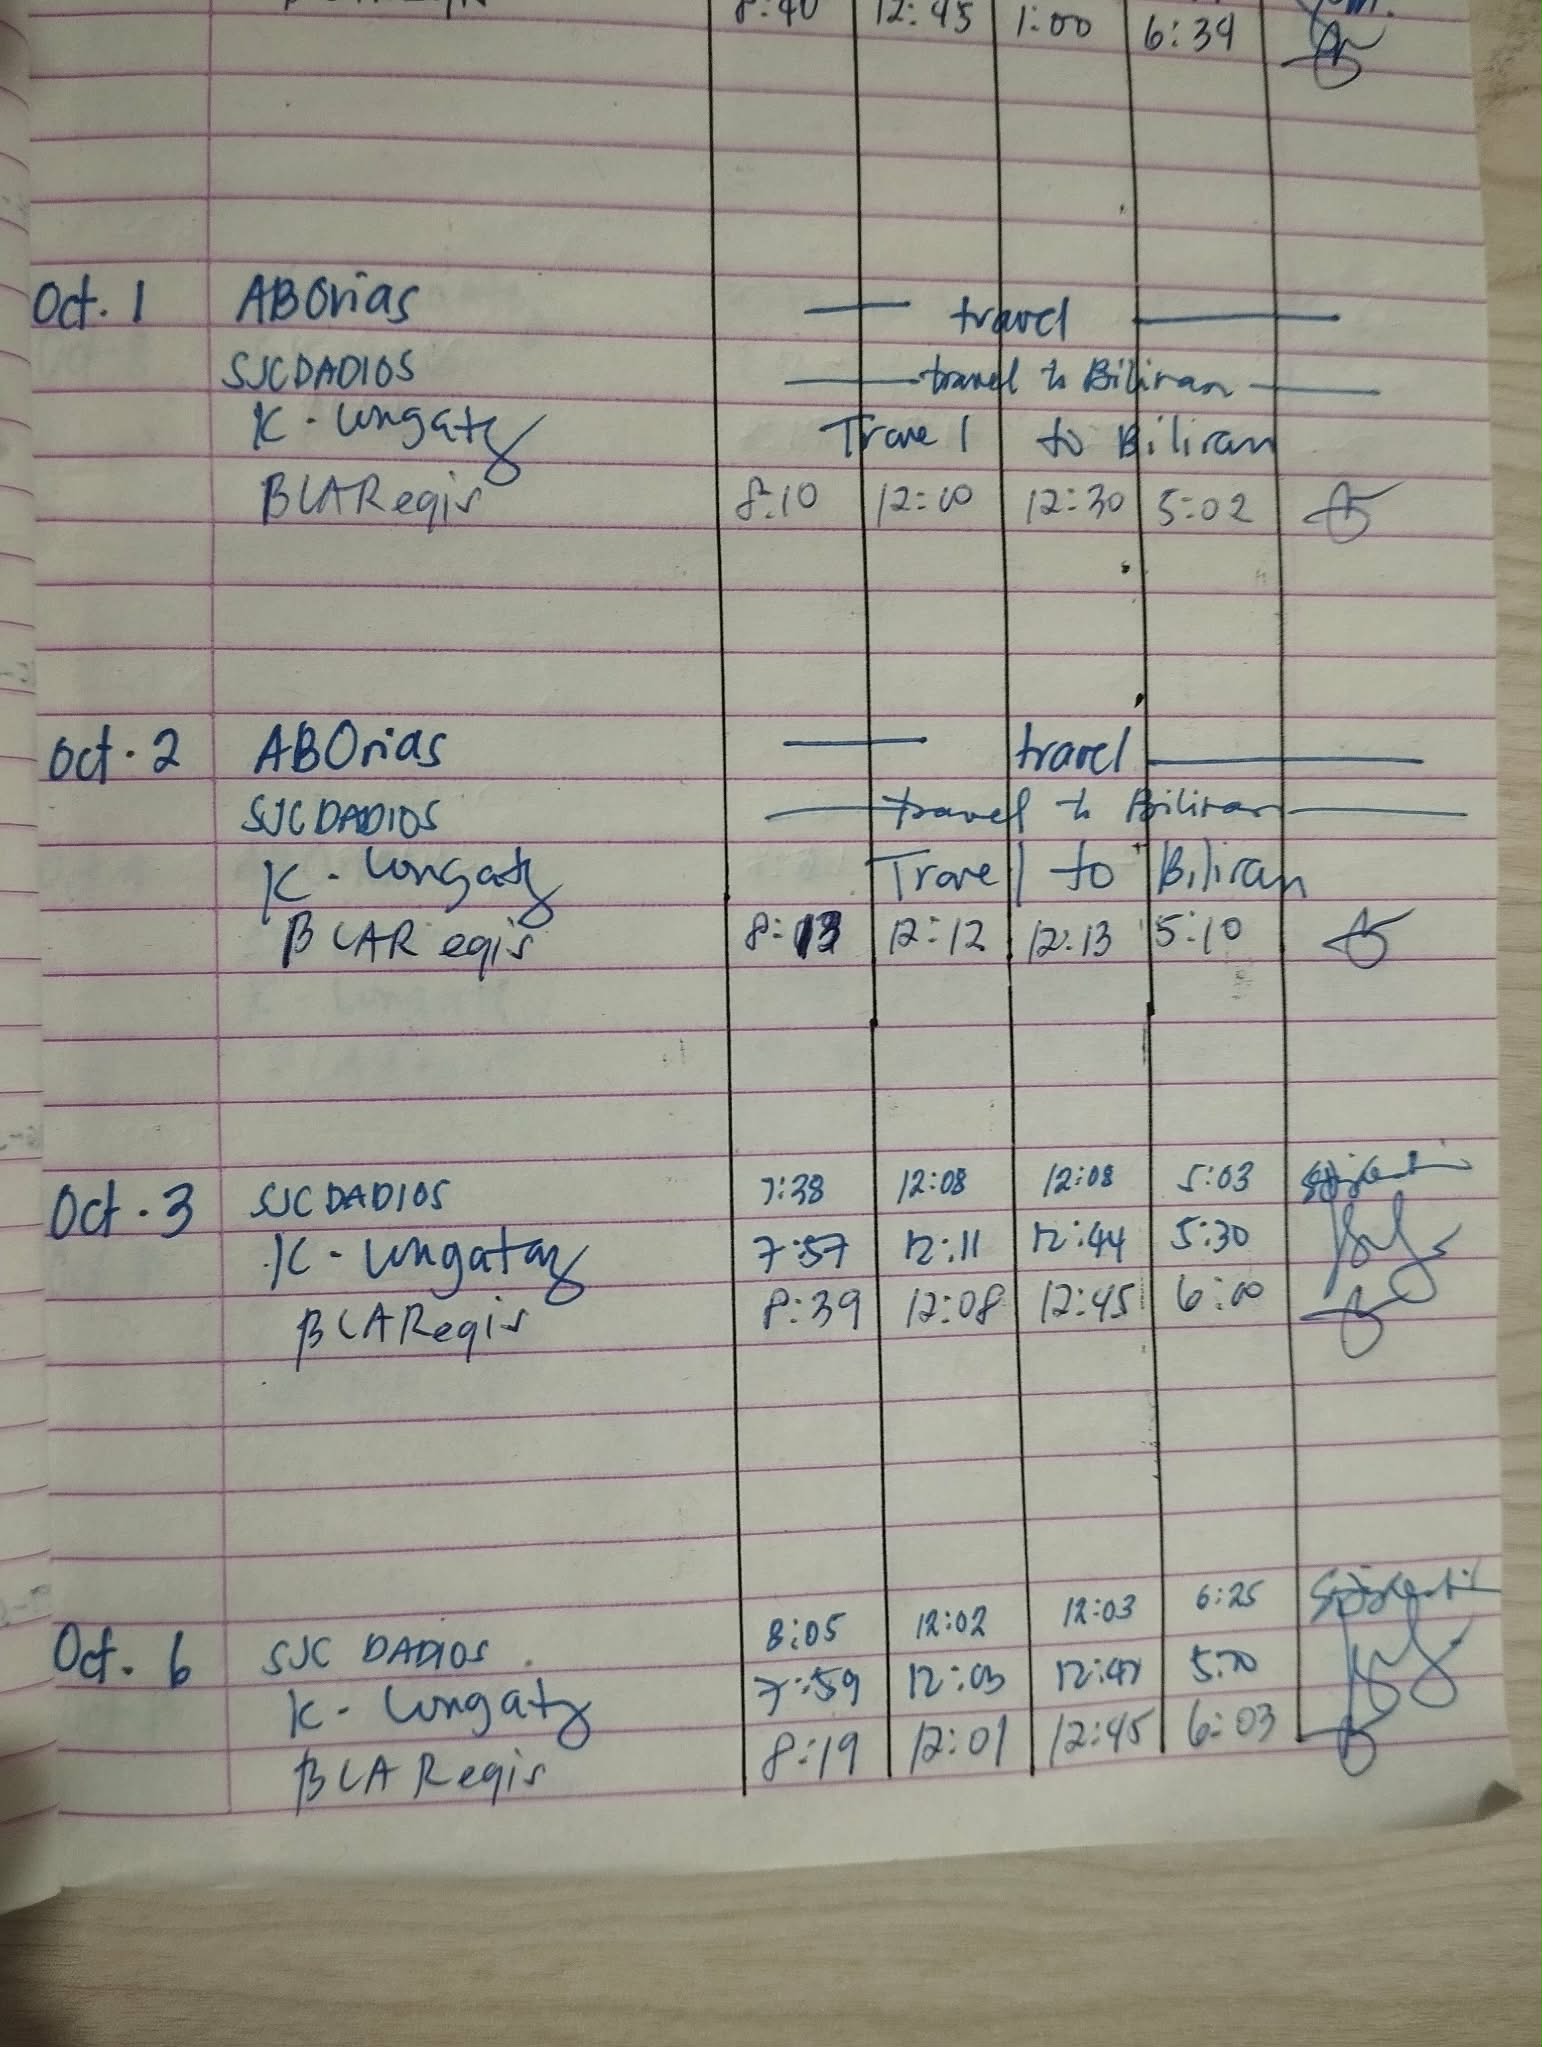 8:40 12:45 1:00 6:34
Oct. 1 ABOrias travel
SJCDADIOS travel to Biliran
K. Travel to Biliran
BLARegis 8:10 12:00 12:30 5:02
Oct. 2 ABOrias travel
SJCDADIOS travel to Biliran
K. Travel to Biliran
BLARegis 8:13 12:12 12:13 5:10
Oct. 3 SJCDADIOS 7:38 12:08 12:08 5:03
K. 7:57 12:11 12:44 5:30
BLARegis 8:39 12:08 12:45 6:00
Oct. 6 SJC DADIOS 8:05 12:02 12:03 6:25
K. 7:59 12:03
BLARegis 8:19 12:01 12:45 6:03